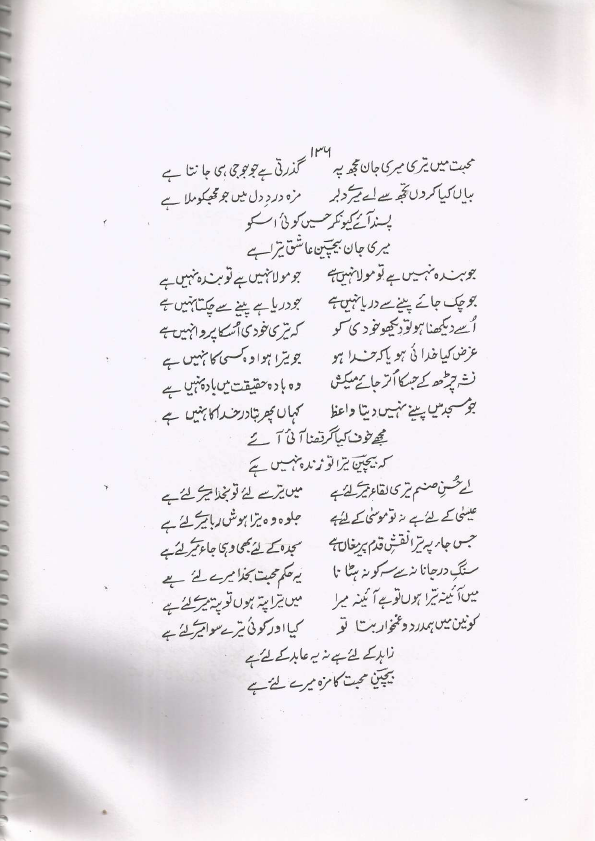 ۱۳۶
محبت میں تیری میری جان مجھ پہ گذرتی ہے جو جو جی ہی جانتا ہے
بیاں کیا کروں تجھ سے اے میرے دلبر مزہ دردِ دل میں جو مجھکو ملا ہے
پسند آئے کیونکر حسیں کوئی اسکو
میری جان بیچین عاشق ترا ہے
جو بندہ نہیں ہے تو مولا نہیں ہے جو مولا نہیں ہے تو بندہ نہیں ہے
جو چک جائے پینے سے دریا نہیں ہے جو دریا ہے پینے سے چکتا نہیں ہے
اُسے دیکھنا ہو تو دیکھو خودی کو کہ تیری خودی اُسکا پروا نہیں ہے
غرض کیا خدائی ہو یا کہ خدا ہو جو ترا ہوا وہ کسی کا نہیں ہے
نشہ چڑھ کے جسکا اُتر جائے میکش وہ بادہ حقیقت میں بادہ نہیں ہے
جو مسجد میں پینے نہیں دیتا واعظ کہاں پھر بتا در خدا کا نہیں ہے
مجھے خوف کیا گر قضا آئی آئے
کہ بیچین ترا تو زندہ نہیں ہے
اے حُسنِ صنم تیری لقاء میرے لئے ہے میں ترے لئے تو بخدا میرے لئے ہے
عیسٰی کے لئے ہے نہ تو موسٰی کے لئے ہے جلوہ وہ ترا ہوش ربا میرے لئے ہے
جس جاء پہ ترا نقشِ قدم پیر مغاں ہے سجدہ کے لئے بھی وہی جاء میرے لئے ہے
سنگِ در جاناں نہ سے سر کو نہ ہٹانا یہ حکم محبت بخدا میرے لئے ہے
میں آئینہ ترا ہوں تو ہے آئینہ میرا میں ترا پتہ ہوں تو پتہ میرے لئے ہے
کونین میں ہمدرد و غمخوار بتا تو کیا اور کوئی تیرے سوا میرے لئے ہے
زاہد کے لئے ہے نہ یہ عابد کے لئے ہے
بیچین محبت کا مزہ میرے لئے ہے